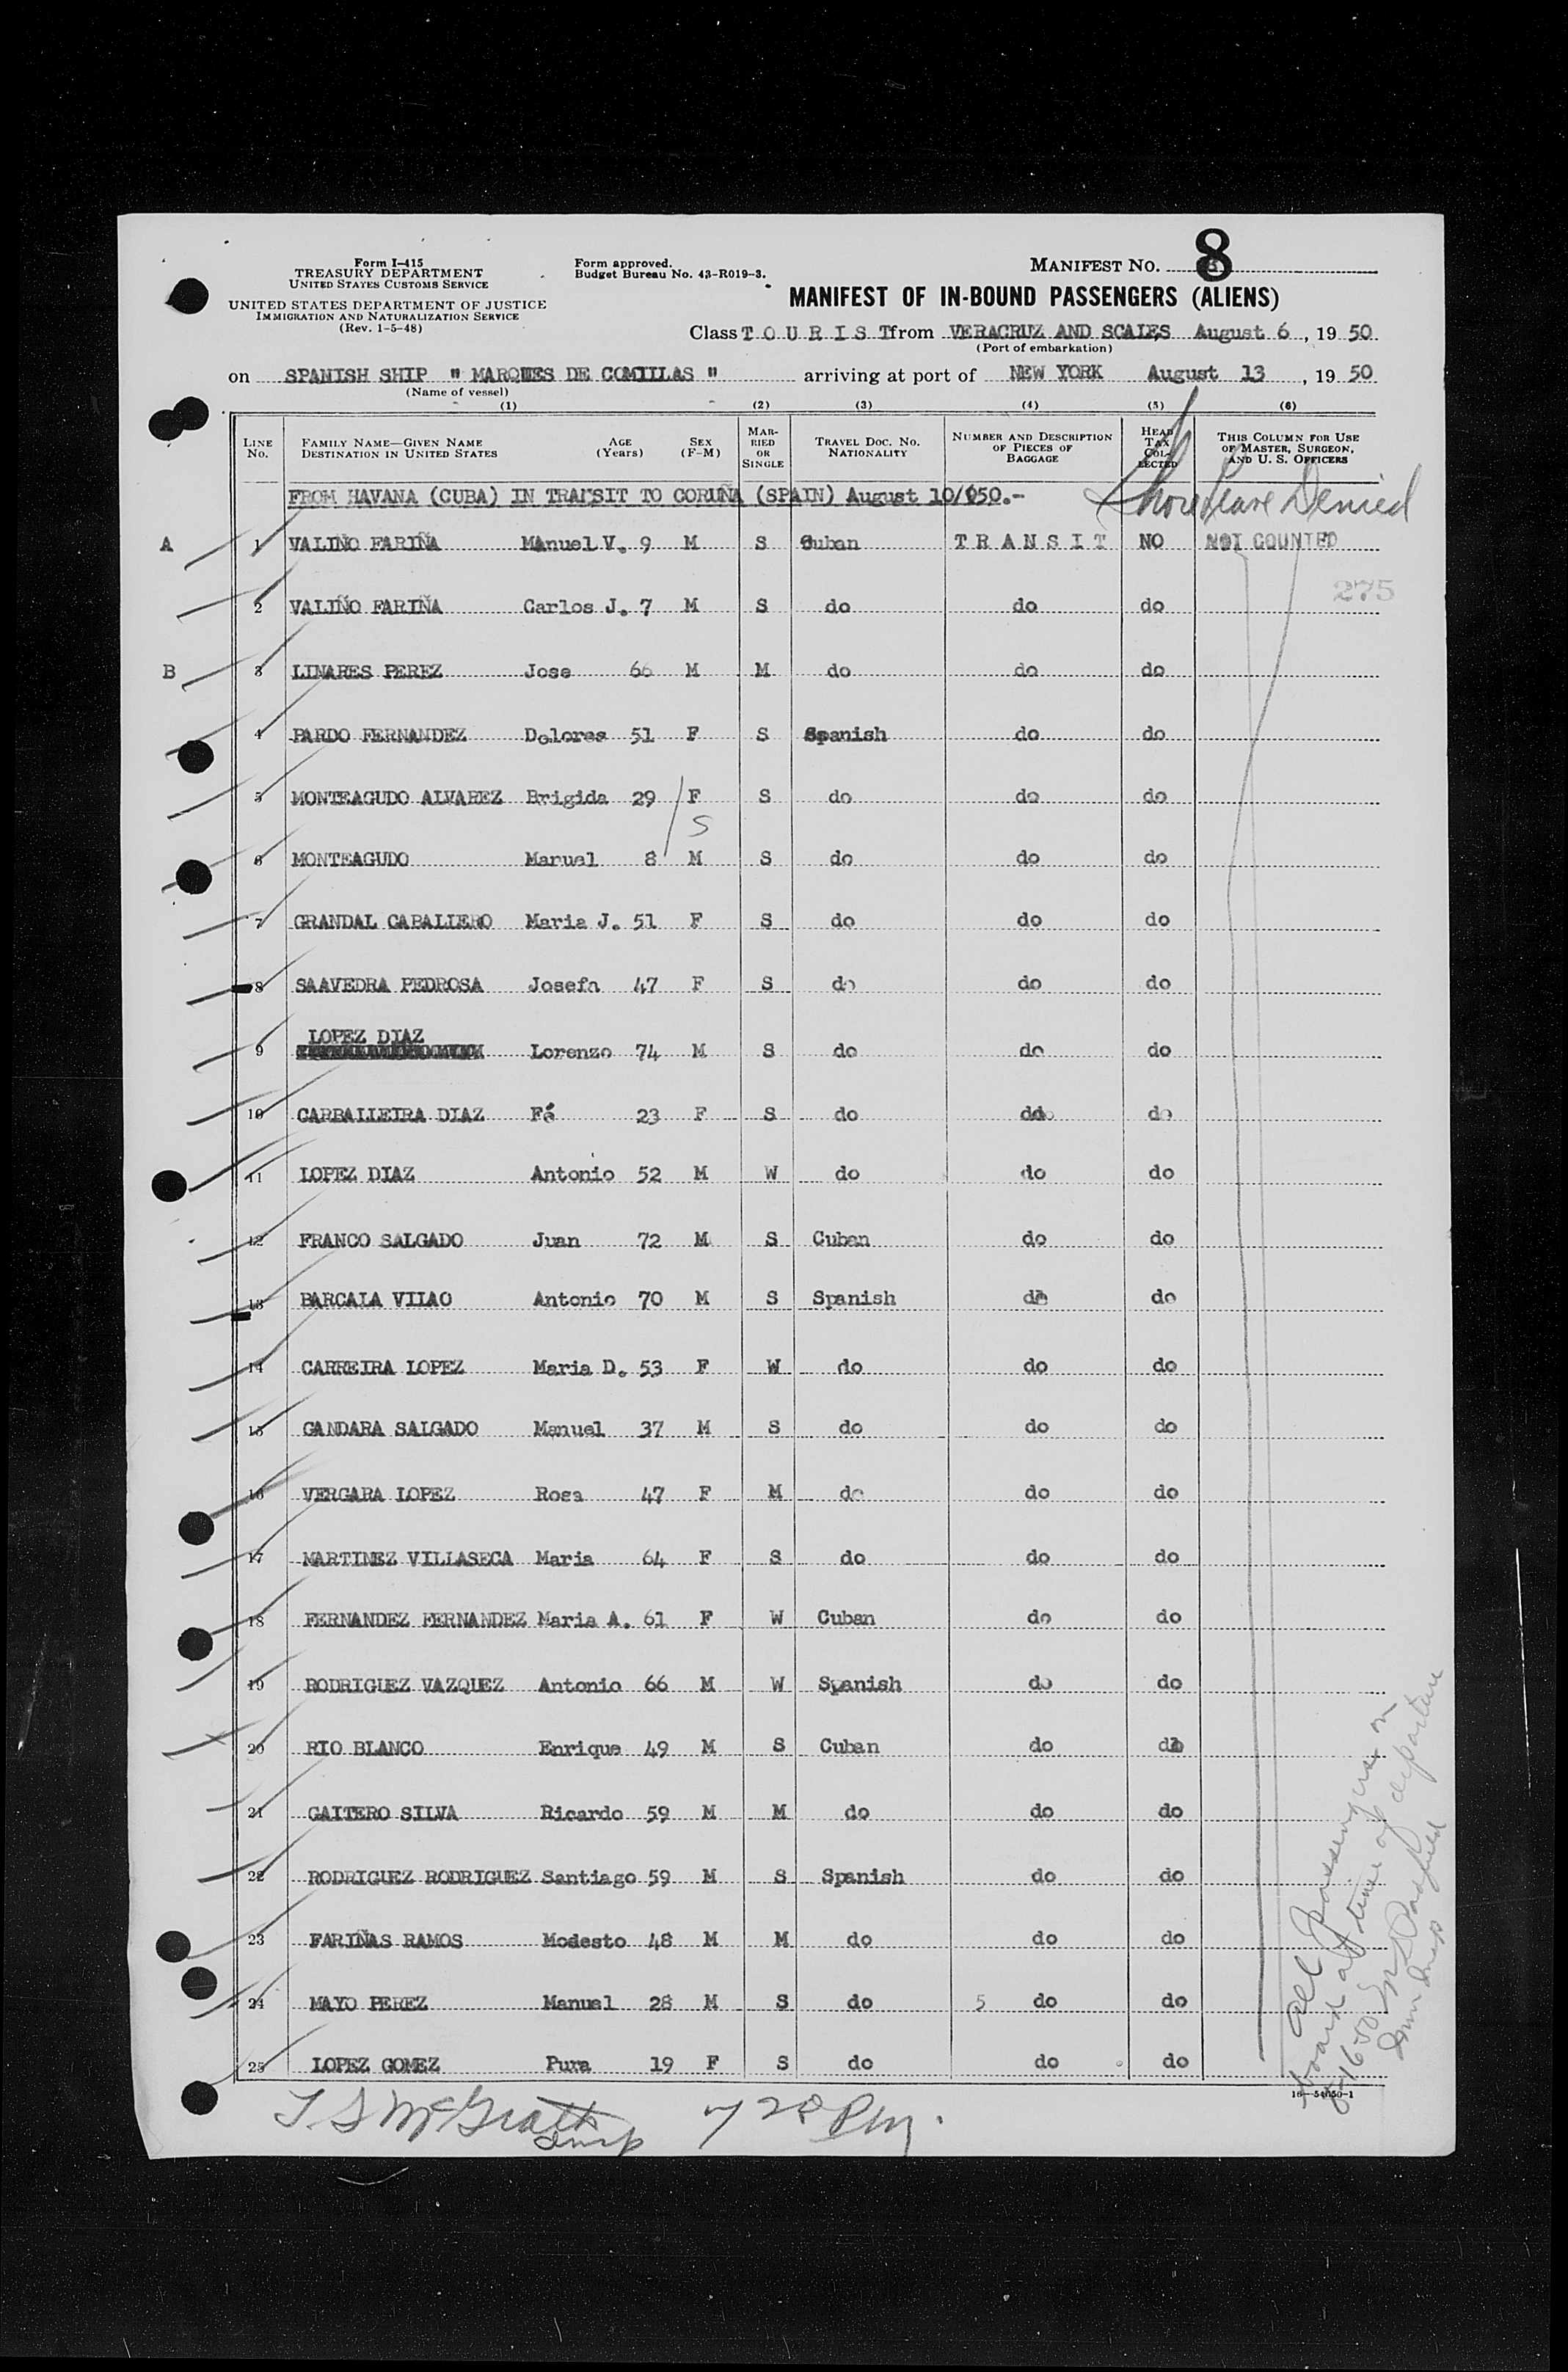 Form I-415
TREASURY DEPARTMENT
UNITED STATES CUSTOMS SERVICE
UNITED STATES DEPARTMENT OF JUSTICE
IMMIGRATION AND NATURALIZATION SERVICE
(Rev. 1-5-48)
Form approved.
Budget Bureau No. 43-R019-3.
MANIFEST NO. 8
MANIFEST OF IN-BOUND PASSENGERS (ALIENS)
Class T O U R I S T from VERACRUZ AND SCALES August 6, 19 50
(Port of embarkation)
on SPANISH SHIP " MARQUES DE COMILLAS " arriving at port of NEW YORK August 13, 19 50
(Name of vessel)
(1) (2) (3) (4) (5) (6)
LINE No. FAMILY NAME—GIVEN NAME DESTINATION IN UNITED STATES AGE (Years) SEX (F-M) MARRIED OR SINGLE TRAVEL DOC. NO. NATIONALITY NUMBER AND DESCRIPTION OF PIECES OF BAGGAGE HEAD TAX COLLECTED THIS COLUMN FOR USE OF MASTER, SURGEON, AND U. S. OFFICERS
FROM HAVANA (CUBA) IN TRANSIT TO CORUÑA (SPAIN) August 10/950.-
Shore Leave Denied
A 1 VALIÑO FARIÑA MAnuel V. 9 M S Cuban T R A N S I T NO NOT COUNTED
275
2 VALIÑO FARIÑA Carlos J. 7 M S do do do
B 3 LINARES PEREZ Jose 66 M M do do do
4 PARDO FERNANDEZ Dolores 51 F S Spanish do do
5 MONTEAGUDO ALVAREZ Brigida 29 F S do do do
S
6 MONTEAGUDO Manuel 8 M S do do do
7 GRANDAL CABALLERO Maria J. 51 F S do do do
8 SAAVEDRA PEDROSA Josefa 47 F S do do do
LOPEZ DIAZ
9 Lorenzo 74 M S do do do
10 CARBALLEIRA DIAZ Fé 23 F S do do do
11 LOPEZ DIAZ Antonio 52 M W do do do
12 FRANCO SALGADO Juan 72 M S Cuban do do
13 BARCALA VILAO Antonio 70 M S Spanish do do
14 CARREIRA LOPEZ Maria D. 53 F W do do do
15 GANDARA SALGADO Manuel 37 M S do do do
16 VERGARA LOPEZ Rosa 47 F M do do do
17 MARTINEZ VILLASECA Maria 64 F S do do do
18 FERNANDEZ FERNANDEZ Maria A. 61 F W Cuban do do
19 RODRIGUEZ VAZQUEZ Antonio 66 M W Spanish do do
20 RIO BLANCO Enrique 49 M S Cuban do do
21 GAITERO SILVA Ricardo 59 M M do do do
22 RODRIGUEZ RODRIGUEZ Santiago 59 M S Spanish do do
23 FARIÑAS RAMOS Modesto 48 M M do do do
24 MAYO PEREZ Manuel 28 M S do 5 do do
25 LOPEZ GOMEZ Pura 19 F S do do do
All passengers on
board at time of departure
8-16-50
16—54650-1
T. S McGrath
Insp
7 28 Pm.